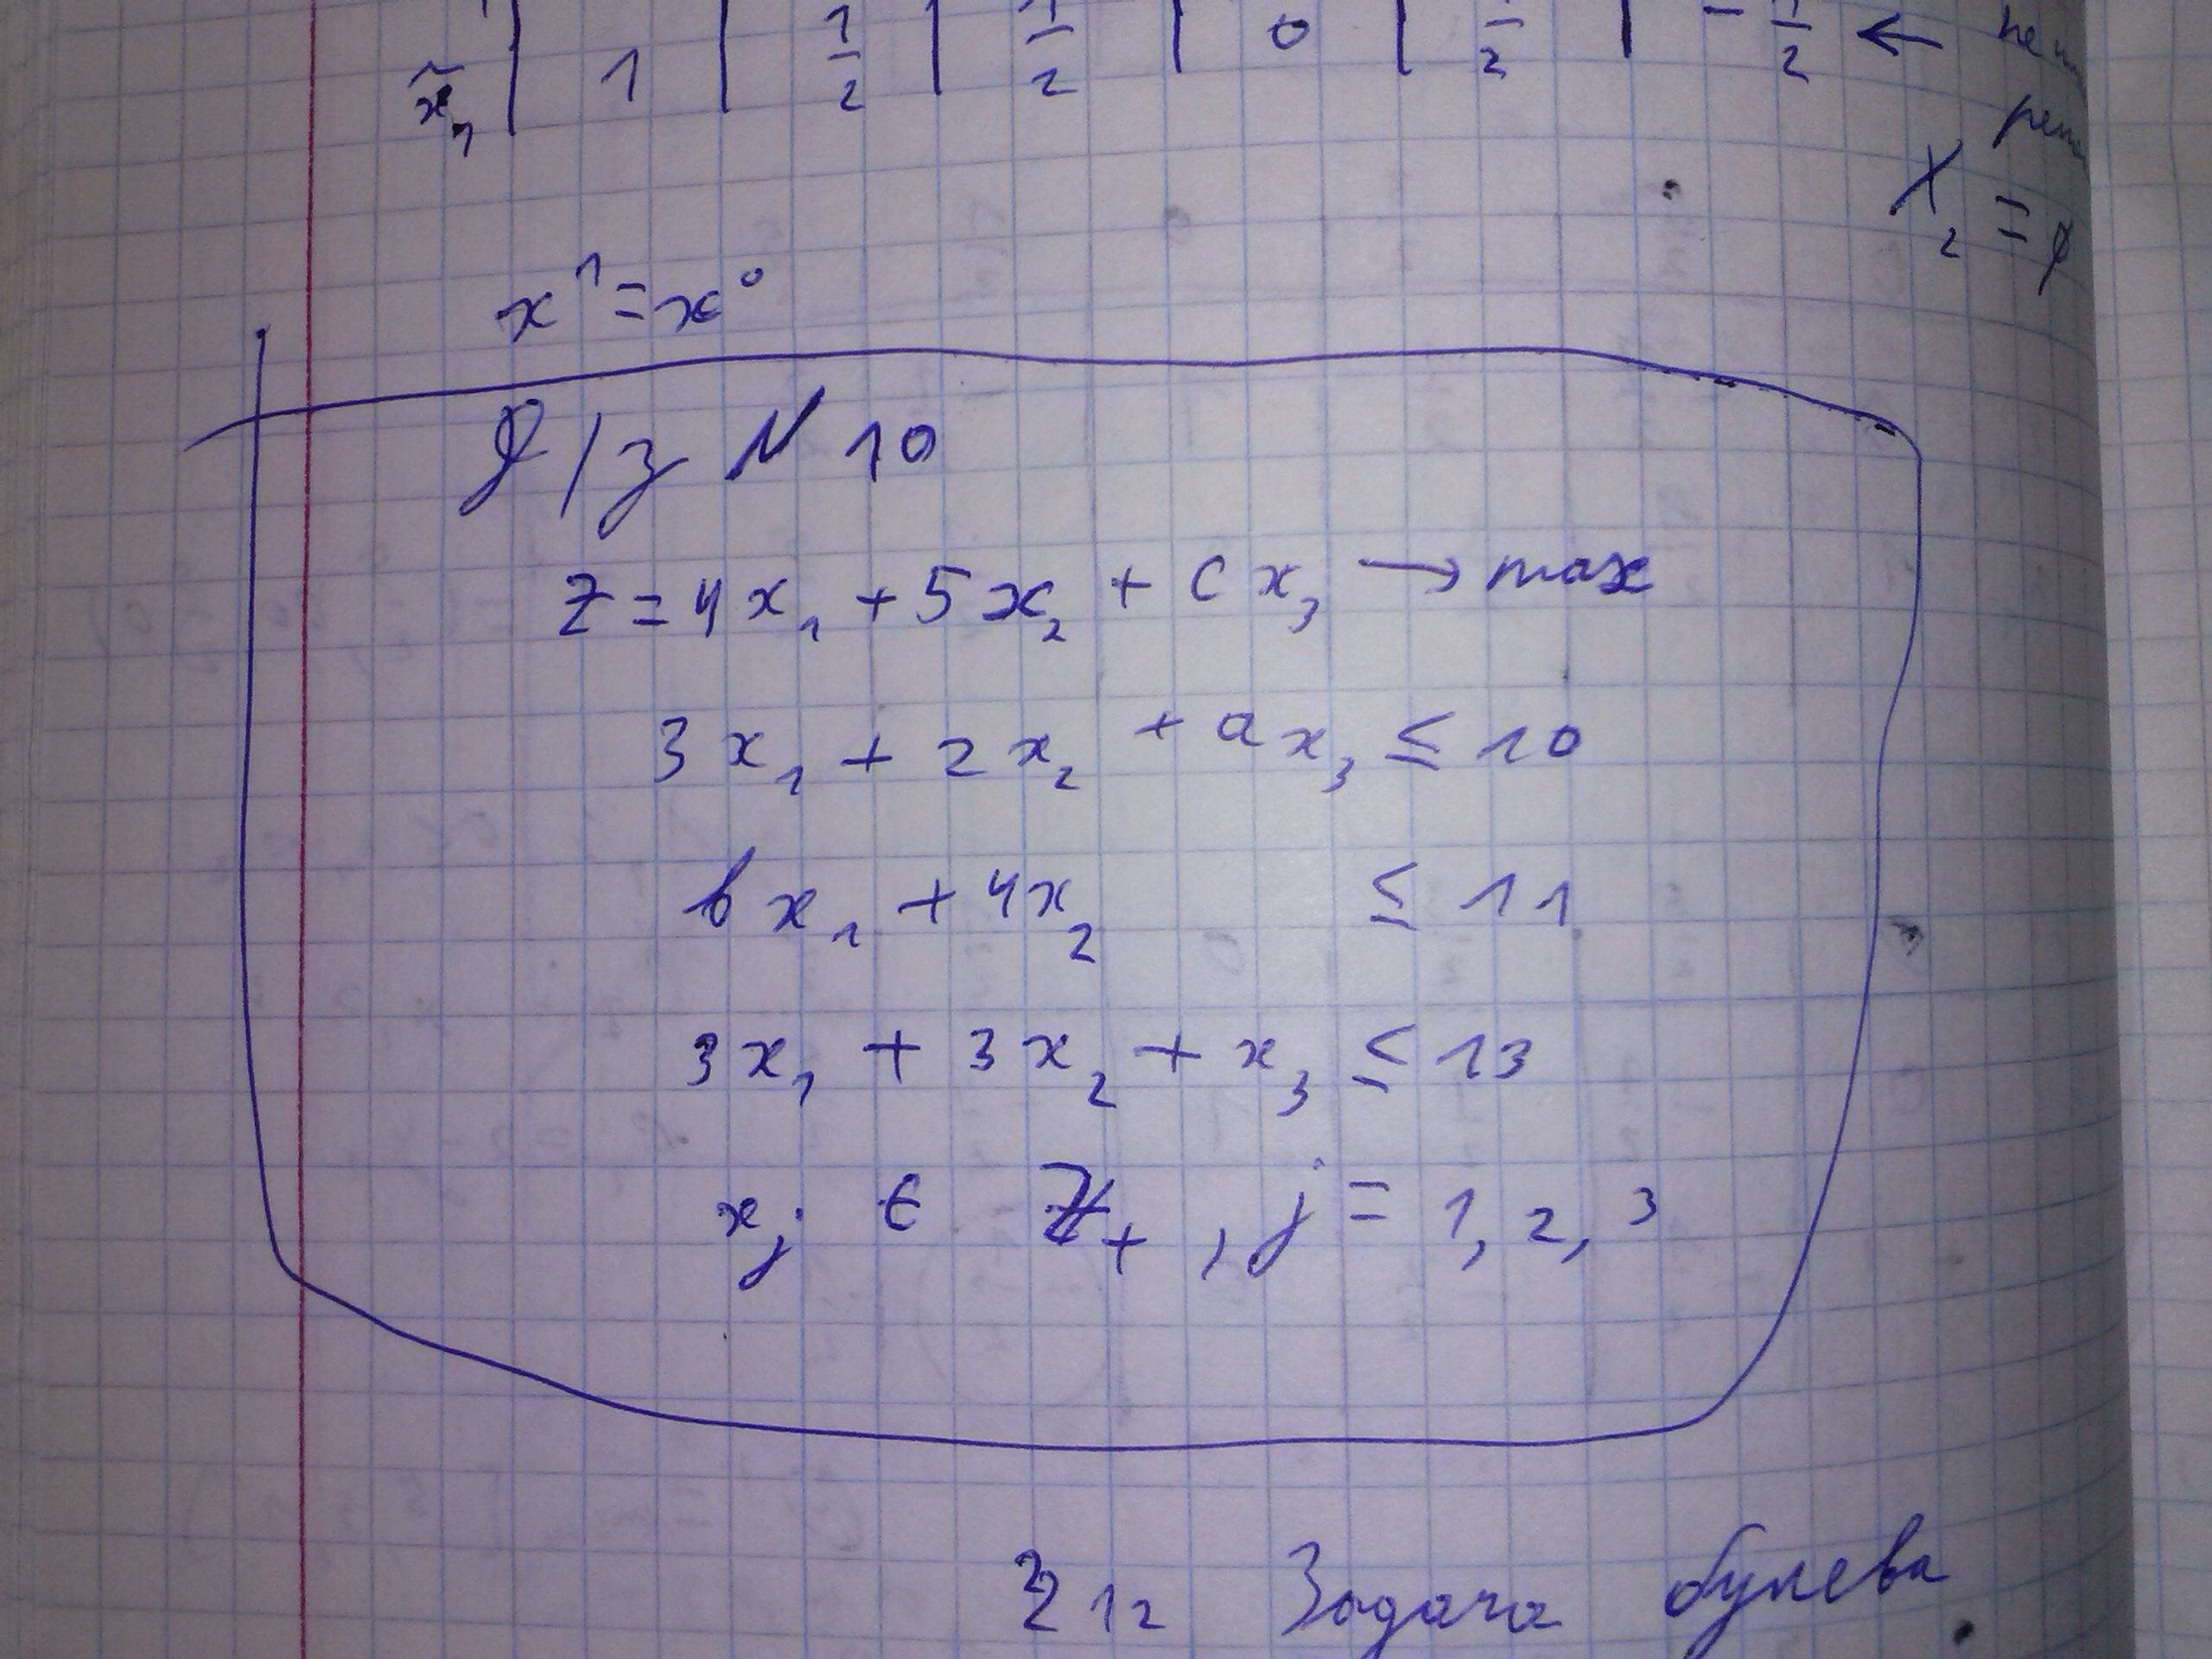 x̃₁ | 1 | 1/2 | 1/2 | 0 | 1/2 | - 1/2 ←
X₂ = ∅
x¹ = x⁰
Д/з N 10
Z = 4x₁ + 5x₂ + cx₃ → max
3x₁ + 2x₂ + ax₃ ≤ 10
вx₁ + 4x₂ ≤ 11
3x₁ + 3x₂ + x₃ ≤ 13
xⱼ ∈ ℤ₊, j = 1, 2, 3
12 Задача булева